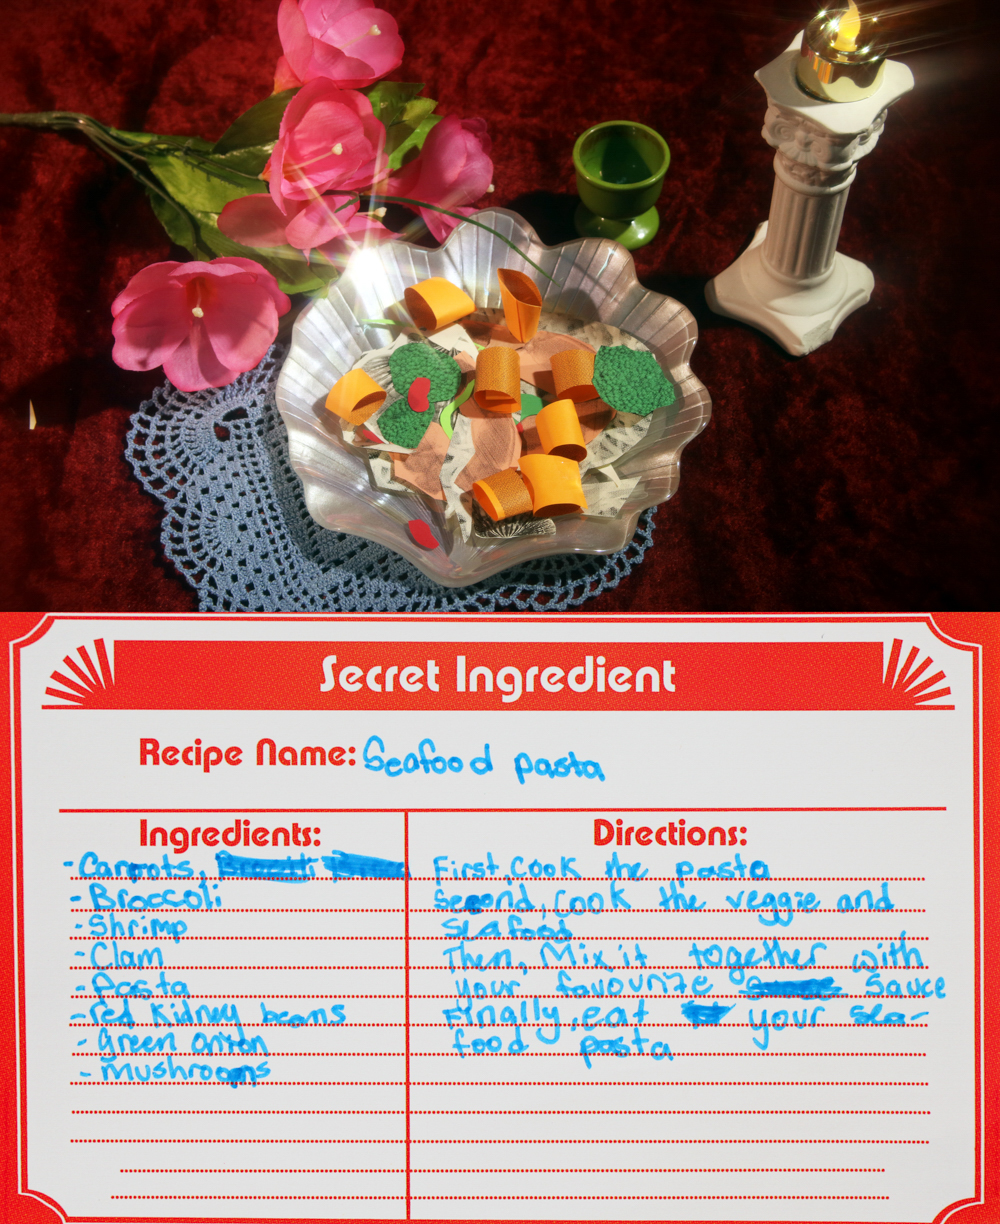 Secret Ingredient
Recipe Name: Seafood pasta
Ingredients:
-Carrots,
-Broccoli
-Shrimp
-Clam
-Pasta
-red Kidney beans
-Green onion
-Mushrooms
Directions:
First, Cook the pasta
Second, Cook the veggie and
Seafood
Then, Mix it together with
your favourite Sauce
Finally, eat your sea-
food pasta